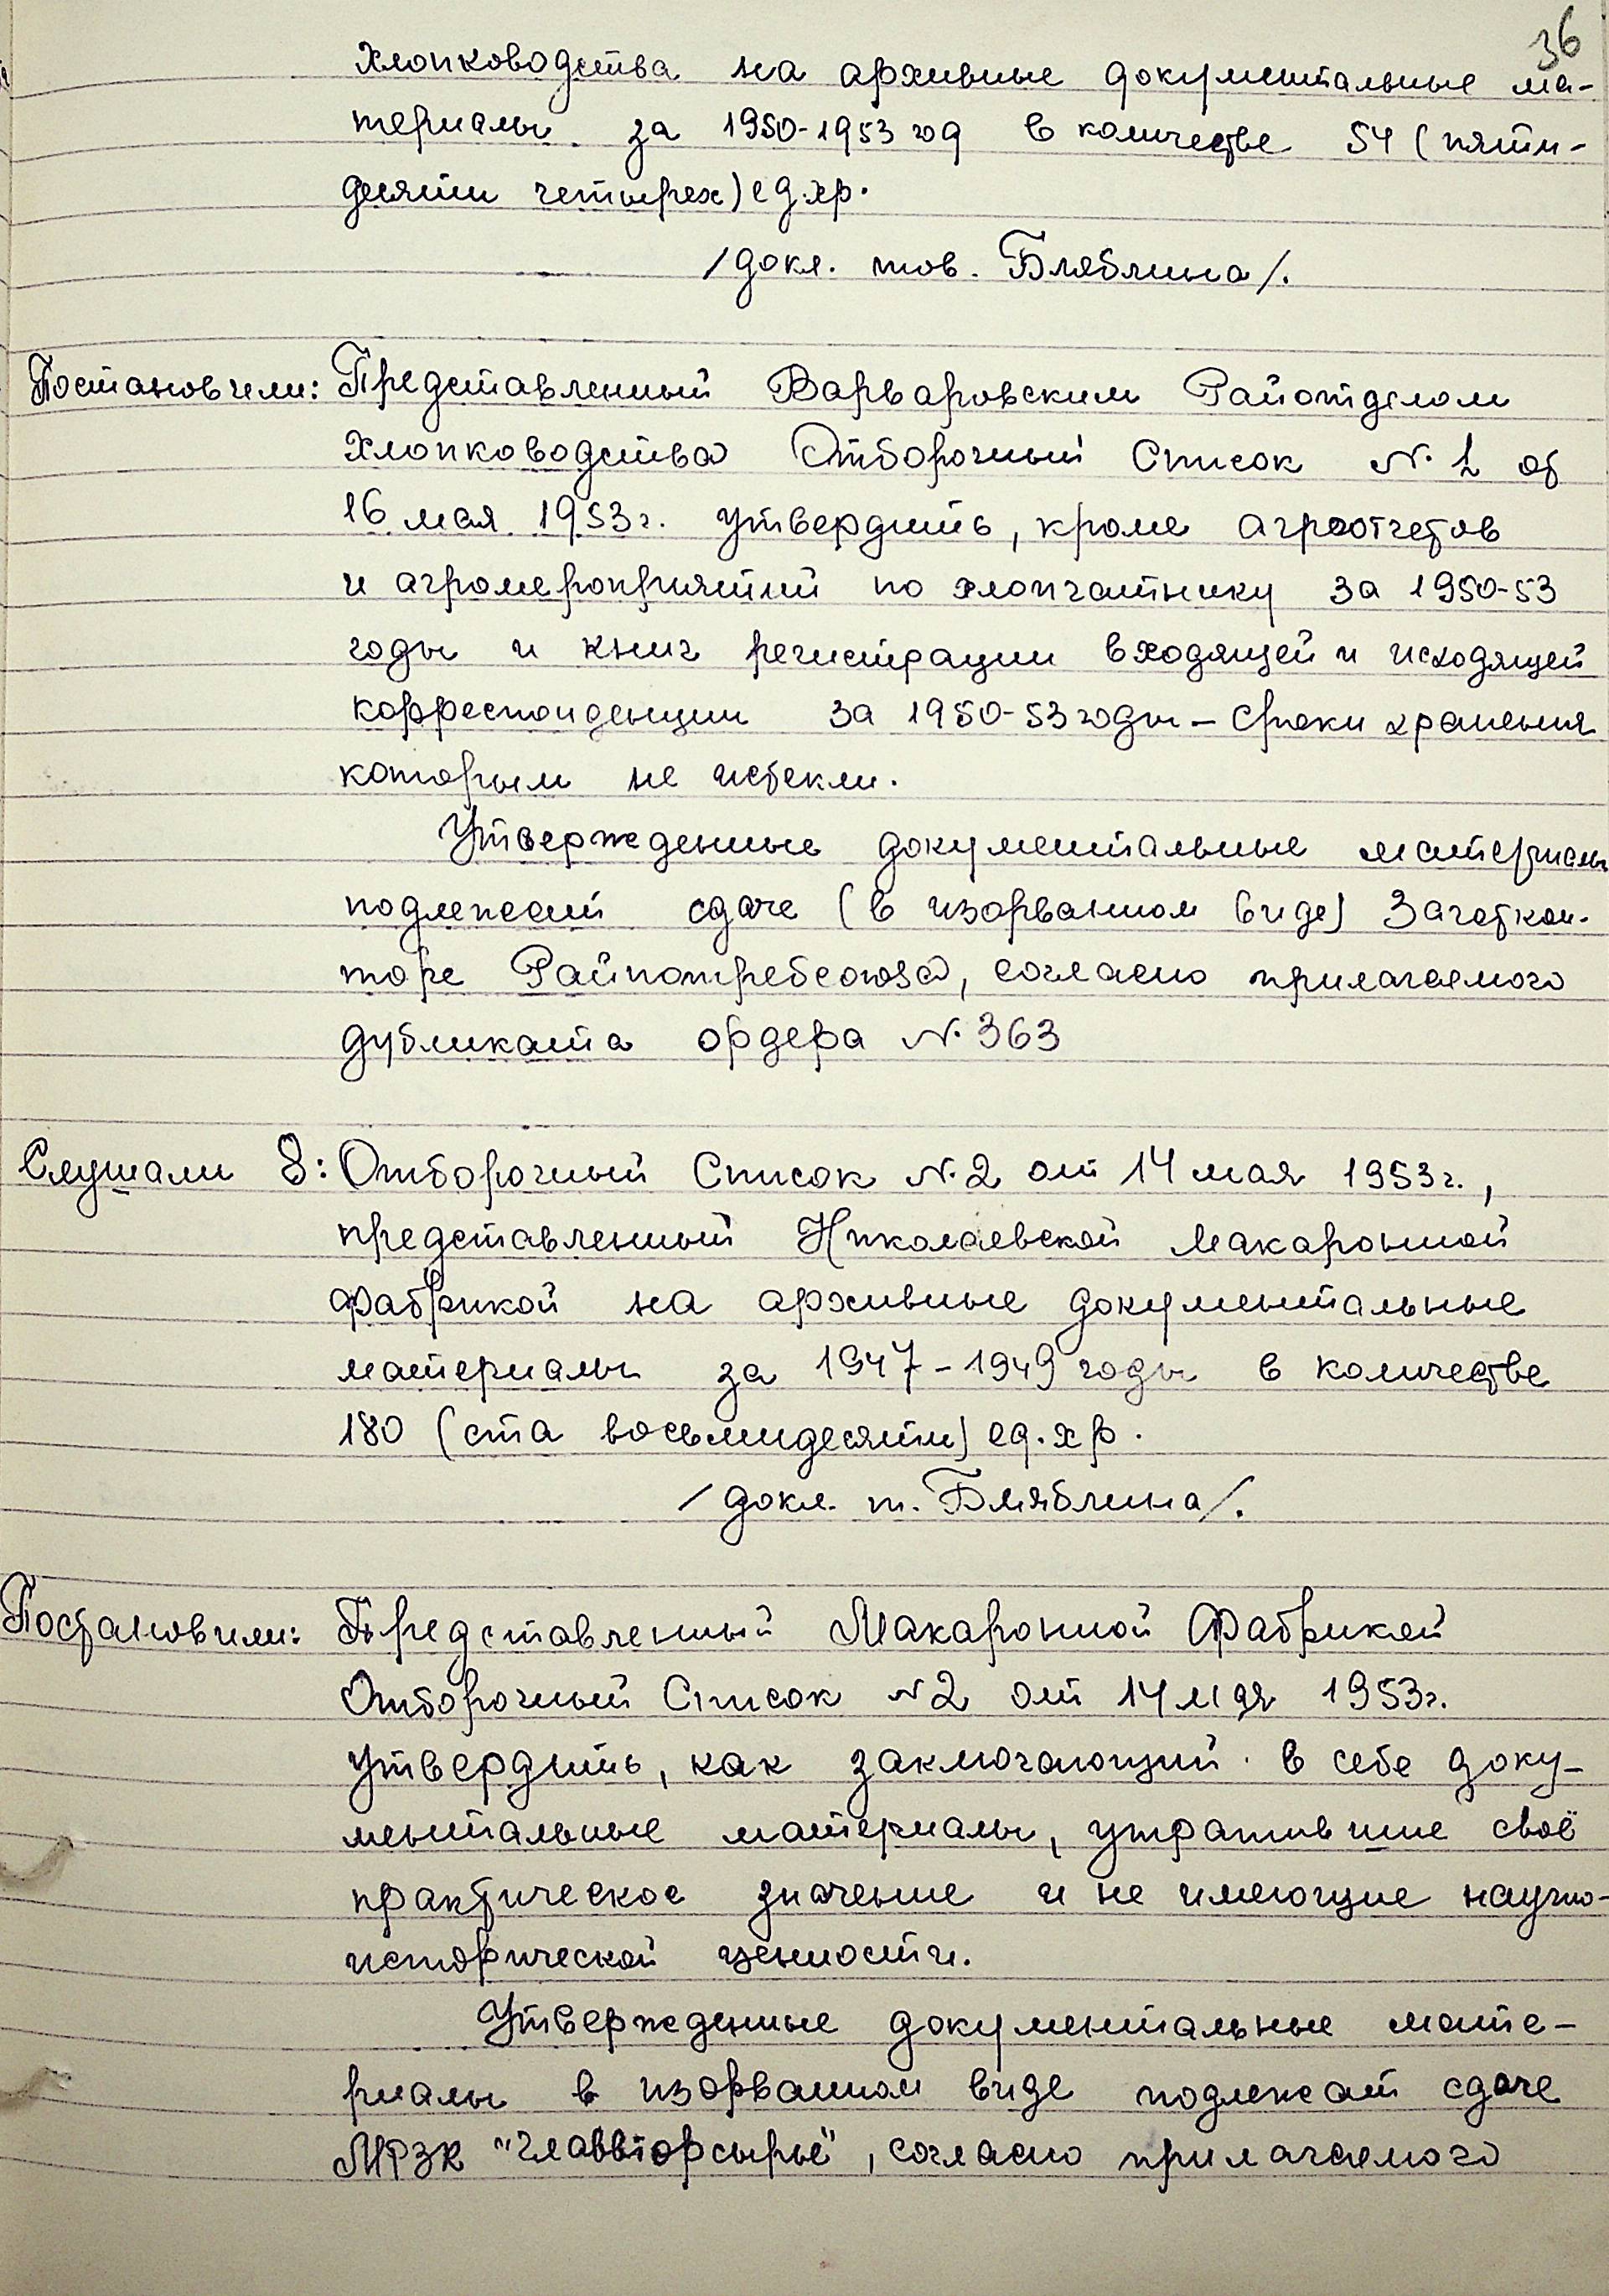 36
хлопководства на архивные документальные ма-
териалы за 1950-1953 год в количестве 54 (пяти-
десяти четырех) ед.хр.
/докл. тов. Бляблина/.
Постановили: Представленный Варваровским Райотделом
хлопководства Отборочный Список №1 от
16 мая 1953 г. утвердить, кроме агроотчетов
и агромероприятий по хлопчатнику за 1950-53
годы и книг регистрации входящей и исходящей
корреспонденции за 1950-53 годы – сроки хранения
которым не истекли.
Утвержденные документальные материалы
подлежат сдаче (в изорванном виде) Заготкон-
торе Райпотребсоюза, согласно прилагаемого
дубликата ордера №363
Слушали 8: Отборочный Список №2 от 14 мая 1953 г.,
представленный Николаевской Макаронной
Фабрикой на архивные документальные
материалы за 1947-1949 годы в количестве
180 (ста восьмидесяти) ед.хр.
/докл. т. Бляблина/.
Постановили: Представленный Макаронной Фабрикой
Отборочный Список №2 от 14 мая 1953 г.
утвердить, как заключающий в себе доку-
ментальные материалы, утратившие своё
практическое значение и не имеющие научно-
исторической ценности.
Утвержденные документальные мате-
риалы в изорванном виде подлежат сдаче
МРЗК "Главвторсырьё", согласно прилагаемого